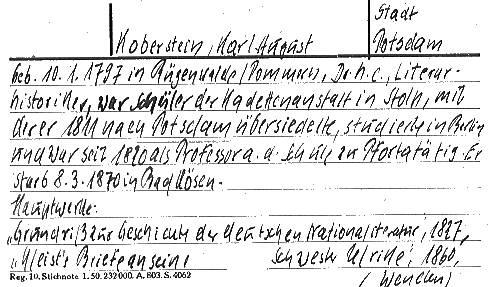 Stadt
Koberstein, Karl August Potsdam
geb. 10.1.1797 in Rügenwalde/Pommern, Dr.h.c., Literar-
historiker, war Schüler der Kadettenanstalt in Stolp, mit
der er 1811 nach Potsdam übersiedelte, studierte in Berlin
und war seit 1820 als Professor a. d. Schule zu Pforta tätig. Er
starb 8.3.1870 in Bad Kösen.
Hauptwerke:
„Grundriß zur Geschichte der deutschen Nationalliteratur", 1827,
„Kleists Briefe an seine Schwester Ulrike", 1860,
Reg. 10. Stichnote 1. 50. 232000. A. 803. S. 4062
(Wenden)